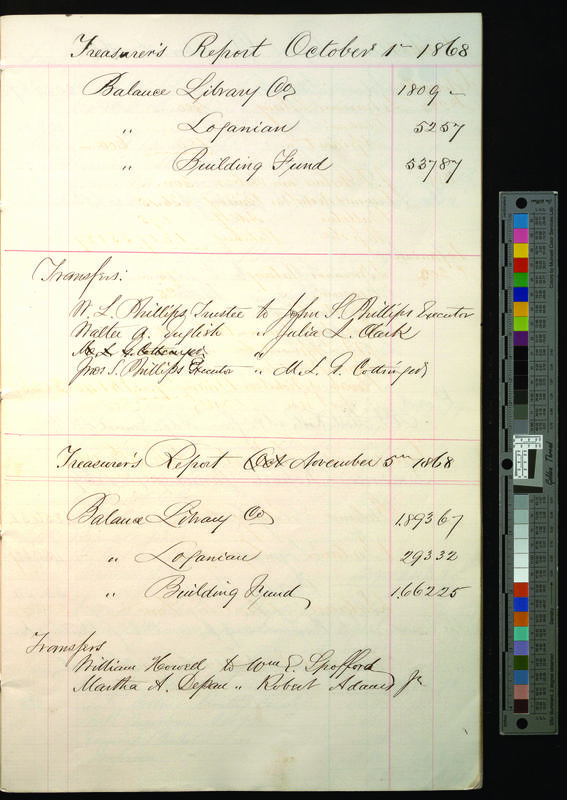 Treasurer's Report October 1st 1868
Balance Library Co 1809 –
" Loganian 52 57
" Building Fund 537 87
Transfers:
W. L. Phillips Trustee to John S. Phillips Executor
Walter G. English " Julia L. Clark
Jno S. Phillips Executor " M. L. G. Cottinger
Treasurer's Report Oct November 5th 1868
Balance Library Co 1.893 67
" Loganian 293 32
" Building Fund 1.662 25
Transfers
William Howell to Wm E. Spofford
Martha A. " Robert Adams Jr